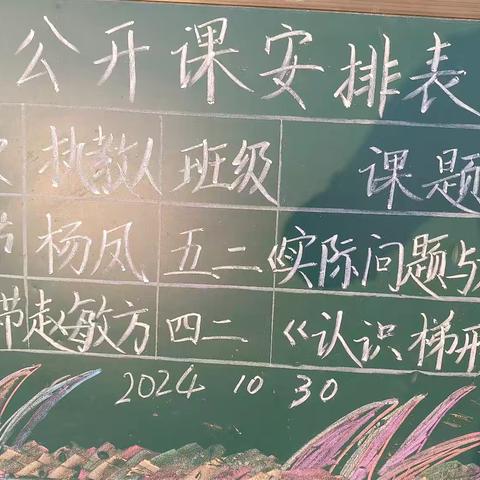 公开课安排表
次 执教人 班级 课题
节 杨凤 五二 《实际问题与
节 赵敏方 四二 《认识梯形
2024 10 30